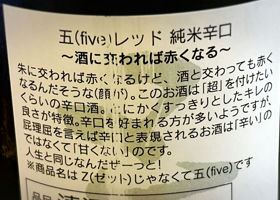 五(five)レッド 純米辛口
〜酒に交われば赤くなる〜
朱に交われば赤くなるけど、酒と交わっても赤く
なるんだそうな(顔が)。このお酒は「超」を付けたい
くらいの辛口酒。とにかくすっきりとしたキレの
良さが特徴。辛口を好まれる方が多いようですが、
屁理屈を言えば辛口と表現されるお酒は「辛い」の
ではなくて「甘くない」のです。
人生と同じなんだぜーっと!
※商品名はZ(ゼット)じゃなくて五(five)です
品目